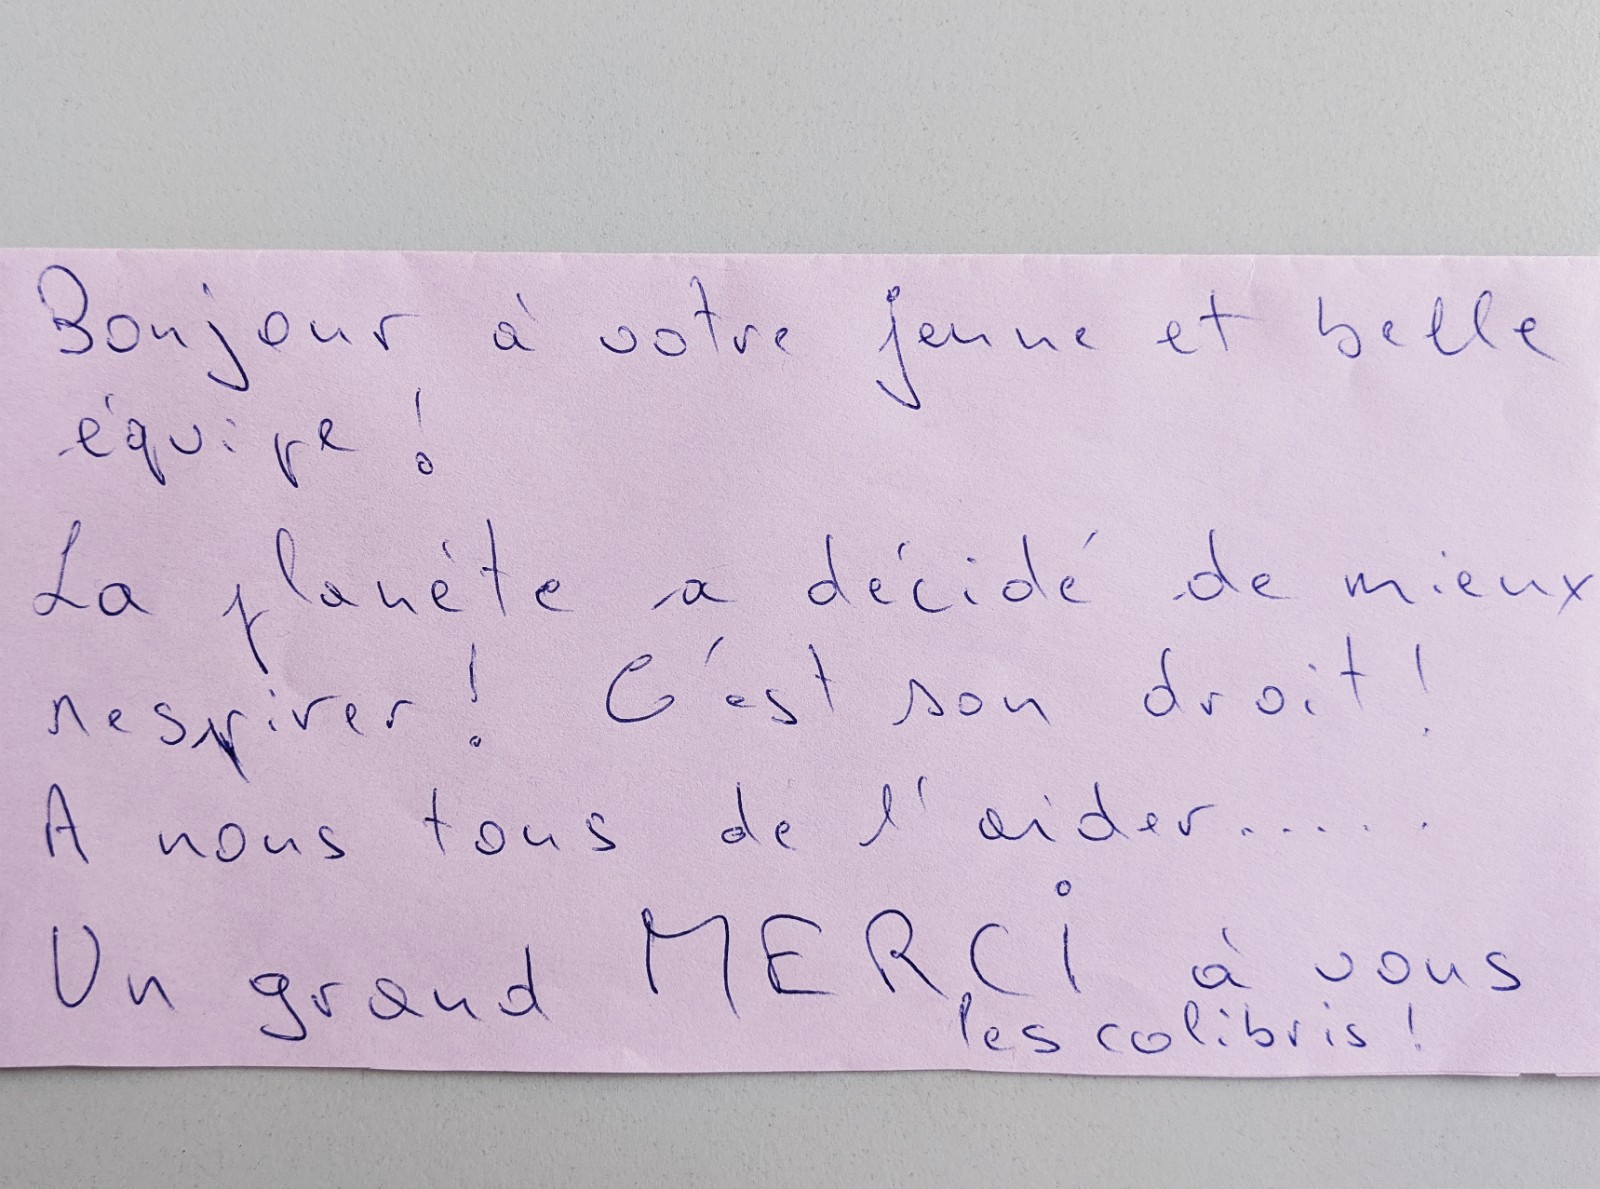 Bonjour à votre jeune et belle
équipe !
La planéte a décidé de mieux
respirer ! C'est son droit !
A nous tous de l'aider.....
Un grand MERCi à vous
les colibris !